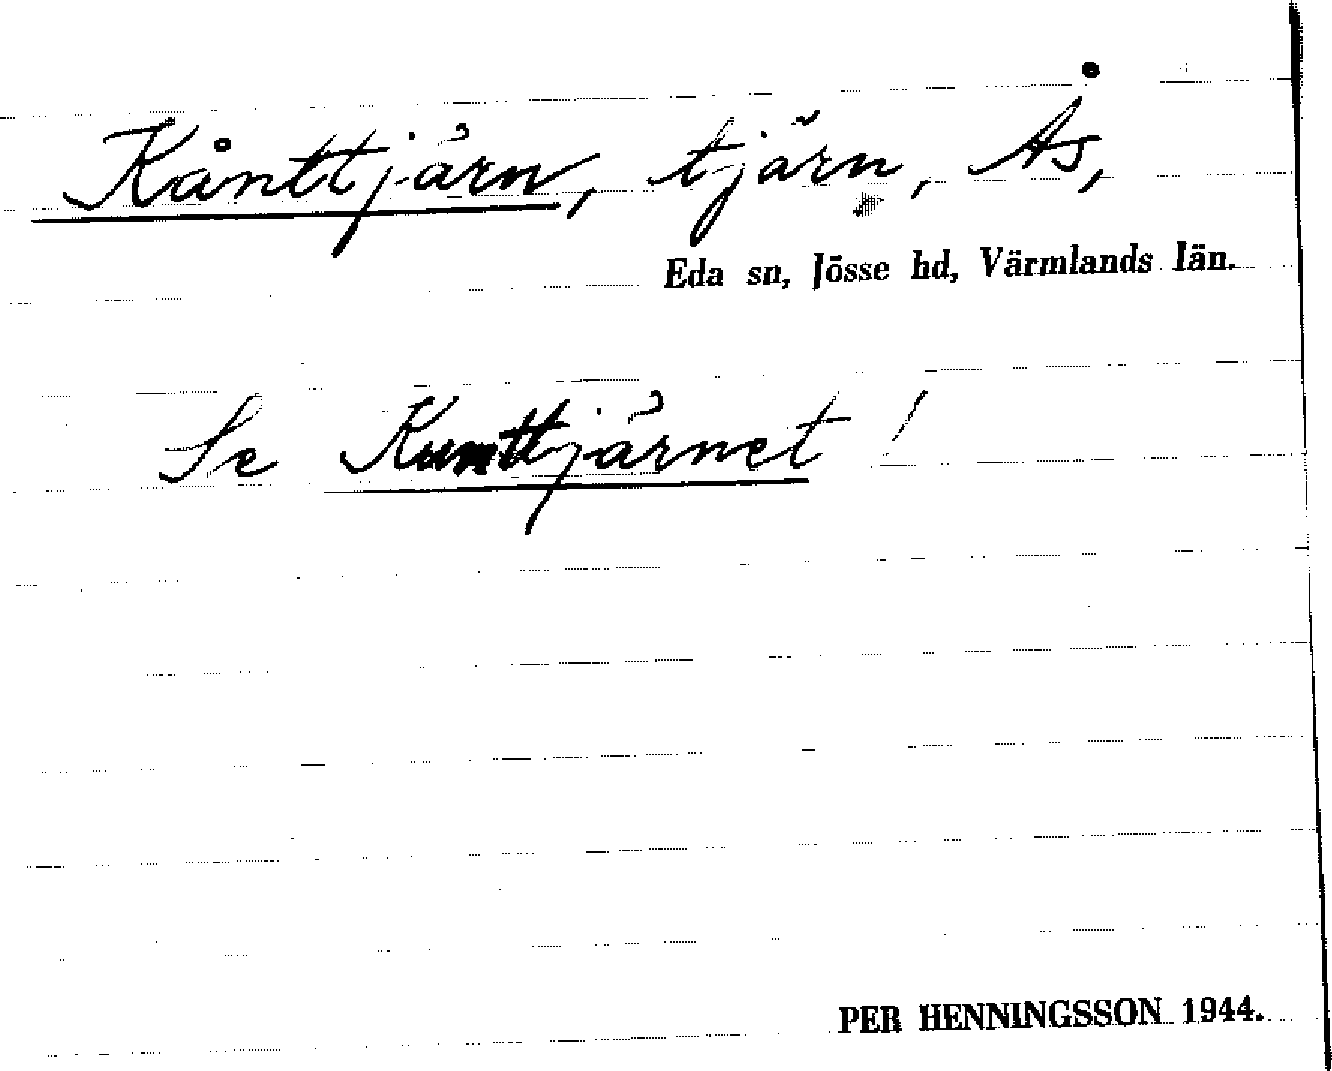 Kånttjärn, tjärn, Ås,
Eda sn, Jösse hd, Värmlands län.
Se Kunttjärnet!
PER HENNINGSSON 1944.